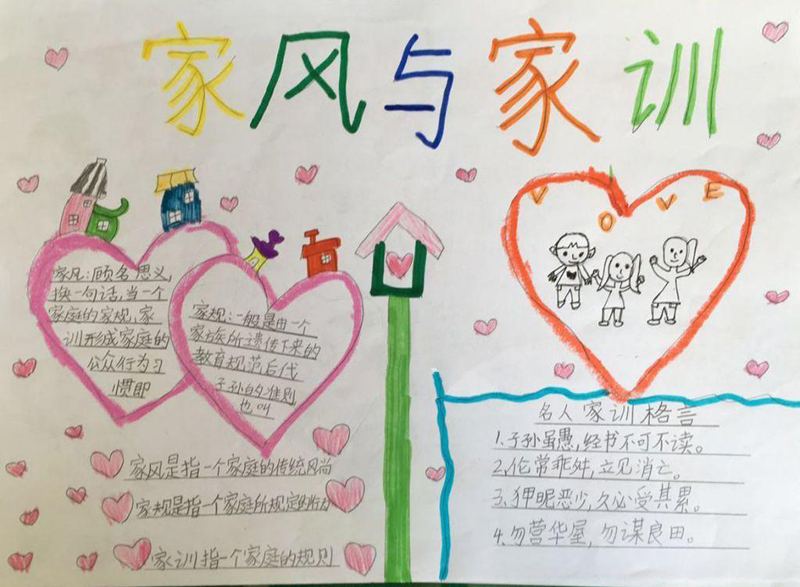 家风与家训
VOVE
家风:顾名思义,
换一句话,当一个
家庭的家规,家
训形成家庭的
公众行为习
惯即
家规:一般是由一个
家族所遗传下来的
教育规范后代
子孙的准则
也叫
家风是指一个家庭的传统风尚
家规是指一个家庭所规定的行为
家训指一个家庭的规则
名人家训格言
1.子孙虽愚,经书不可不读。
2.伦常乖舛,立见消亡。
3.狎昵恶少,久必受其累。
4.勿营华屋,勿谋良田。